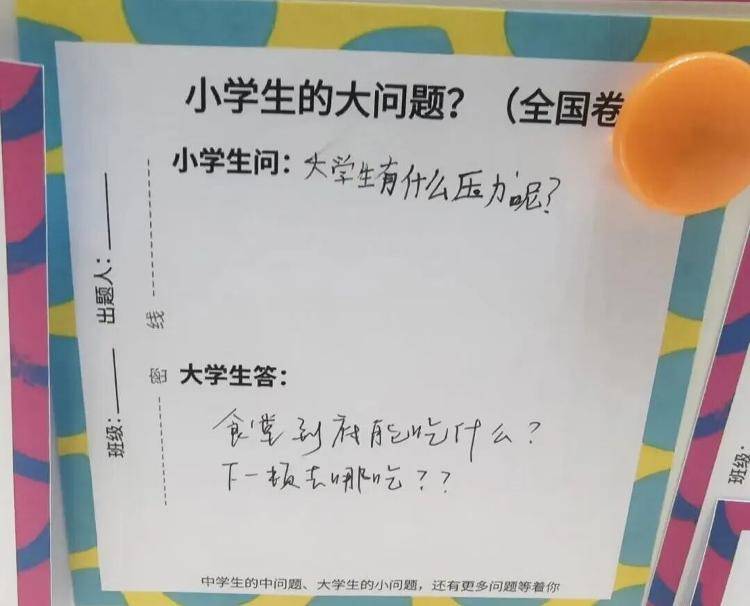 小学生的大问题？（全国卷
小学生问：大学生有什么压力呢？
出题人：
班级：
线
密
大学生答：
食堂到底能吃什么？
下一顿去哪吃？？
中学生的中问题、大学生的小问题，还有更多问题等着你
班级：